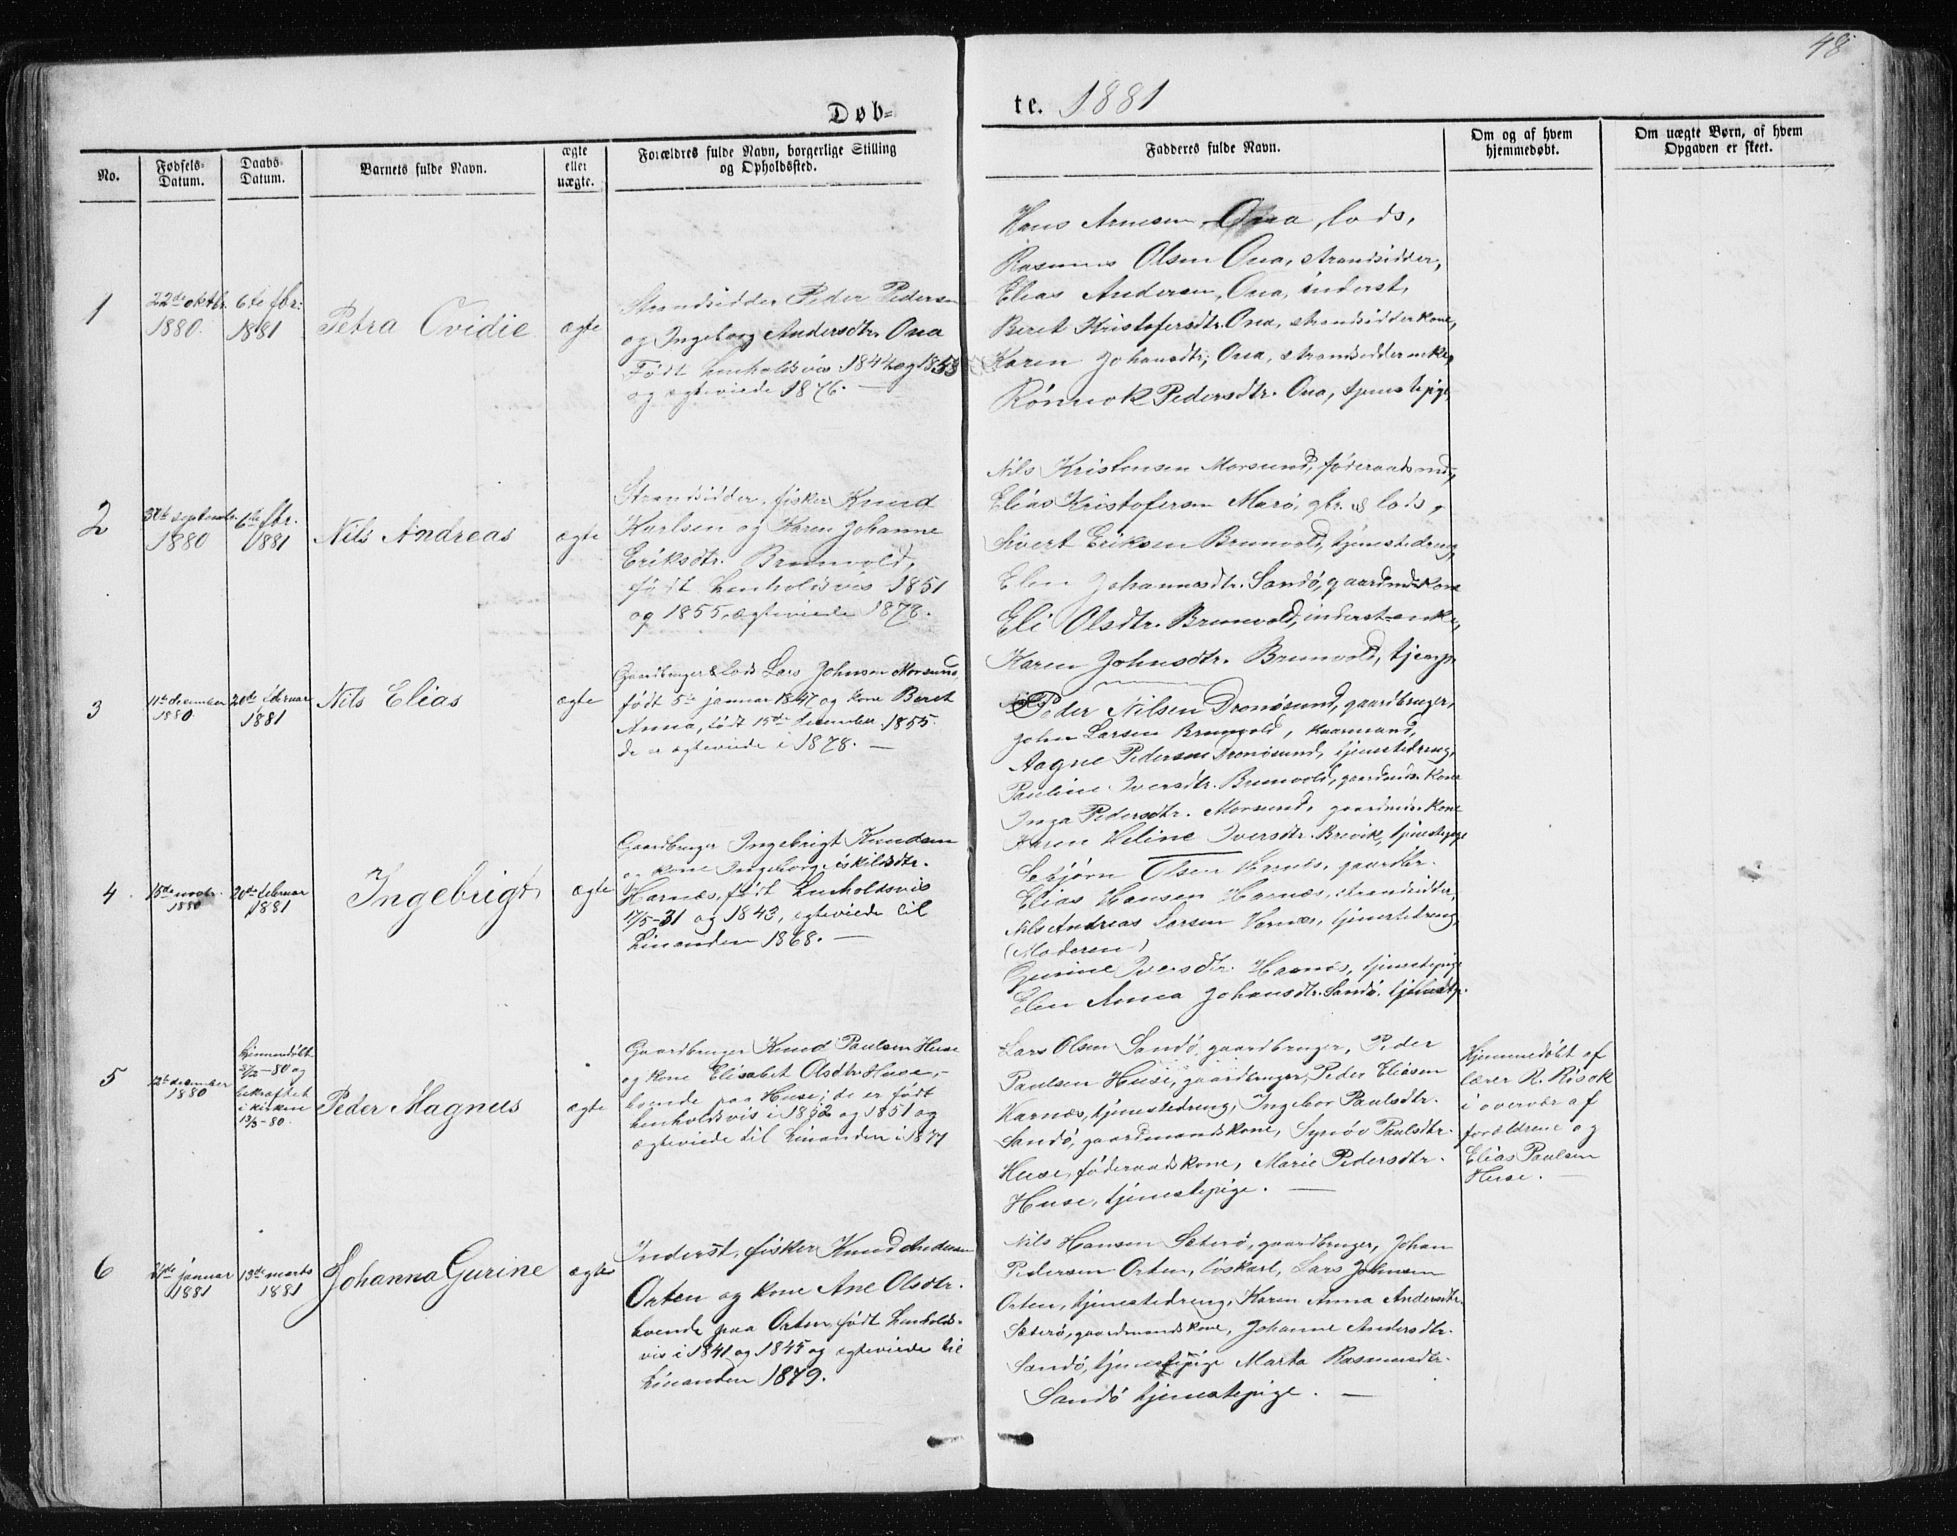 48
Døb=
te. 1881
No.
Fødsels-
Datum.
Daabs-
Datum.
Barnets fulde Navn.
ægte
eller
uægte.
Forældres fulde Navn, borgerlige Stilling
og Opholdssted.
Fadderes fulde Navn.
Om og af hvem
hjemmedøbt.
Om uægte Børn, af hvem
Opgaven er skeet.
1
22de oktbr.
1880.
6te fbr.
1881
Petra Ovidie
ægte
Strandsidder Peder Pedersen
og Ingeborg Andersdtr. Ona
Født henholdsvis 1844 og 1853
og ægteviede 1876. —
Hans Arnesen, Ona, lods,
Rasmus Olsen Ona, strandsidder,
Elias Andersen, Ona, inderst,
Beret Kristofersdtr. Ona, strandsidderkone,
Karen Johansdtr, Ona, strandsidderenke,
Rönnok Pedersdtr. Ona, tjenestepige,
2
30te septembr.
1880
6te fbr.
1881
Nils Andreas
ægte
Strandsidder, fisker Knud
Karlsen og Karen Johanne
Eriksdtr. Brunvold,
født henholdsvis 1851
og 1855, ægteviede 1878.
Nils Kristensen Morsund, föderaadsmd,
Elias Kristofersen Marö, gbr. & lods,
Sivert Eriksen Brunvold, tjenestedreng,
Elen Johannesdtr. Sandö, gaardmdskone
Eli Olsdtr. Brunvold, inderst-enke,
Karen Johnsdtr. Brunvold, tjenep.
3
11te desember
1880
20de februar
1881
Nils Elias
ægte
Gaardbruger & lods Lars Johnsen Morsund,
født 5te januar 1847 og kone Beret
Anna, født 15de desember 1855.
de er ægteviede i 1878. —
Peder Nilsen Dronösund, gaardbruger,
John Larsen Brunvold, kaarmand,
Aagne Pedersen Dronösund, tjenestedreng,
Pauline Iversdtr. Brunvold, gaardmds. kone
Inga Pedersdtr. Morsund, gaardmds. kone
Karen Heline Iversdtr. Brevik, tjenestepige
4
15de novbr.
1880
20de februar
1881
Ingebrigt
ægte
Gaardbruger Ingebrigt Knudsen
og kone Ingeborg Eskildsdtr.
Harnæs, født henholdsvis
17/5-31 og 1843, ægteviede til
hinanden 1868. —
Olsen Harnæs, gaardbr.
Elias Hansen Harnæs, strandsidder,
Nils Andreas Larsen Harnæs, tjenestedreng,
(Moderen)
Gurine Iversdtr. Harnæs, tjenestepige
Elen Anna Johansdtr. Sandö, tjenestp.
5
12te desember
1880
hjemmedöbt
27/12-80 og
bekræftet
i kirken
13/3-80.
Peder Magnus
ægte
Gaardbruger Knud Paulsen Huse
og kone Elisabet Olsdtr. Huse, —
boende paa Huse; de er født
henholdsvis i 1842 og 1851 og
ægteviede til hinanden i 1871
Lars Olsen Sandö, gaardbruger, Peder
Paulsen Huse, gaardbruger, Peder Eliasen
Harnæs, tjenestedreng, Ingebor Paulsdtr.
Sandö, gaardmandskone, Synöv Paulsdtr.
Huse, föderaadskone, Marie Pedersdtr.
Huse, tjenestepige. —
Hjemmedöbt af
lærer R. Rösok
i overvær af
forældrene og
Elias Paulsen
Huse. —
6
januar
1881
13de marts
1881
Johanna Gurine
ægte
Inderst, fisker Knud Andersen
Orten og kone Ane Olsdtr.
boende paa Orten, født henholds-
vis i 1841 og 1845 og ægteviede til
hinanden 1879.
Nils Hansen Sæterö, gaardbruger, Johan
Pedersen Orten, löskarl, Lars Johnsen
Orten, tjenestedreng, Karen Anna Andersdtr.
Sæterö, gaardmandskone, Johanne Andersdtr.
Sandö, tjenestepige Marta Rasmusdtr.
Sandö tjenestepige. —